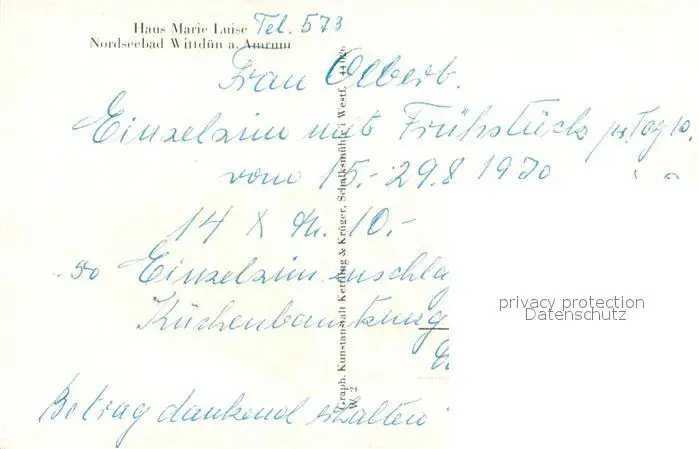 Haus Marie Luise Tel. 573
Nordseebad Wittdün a. Amrum
Frau Olberb.
Einzelzim mit Frühstück pr. Tag 10.
vom 15.- 29.8 1970
14 X M. 10.-
Einzelzim
Küchenbenutzung
Betrag dankend erhalten
Graph. Kunstanstalt Kettling & Krüger, Schalksmühle i. Westf.
privacy protection
Datenschutz